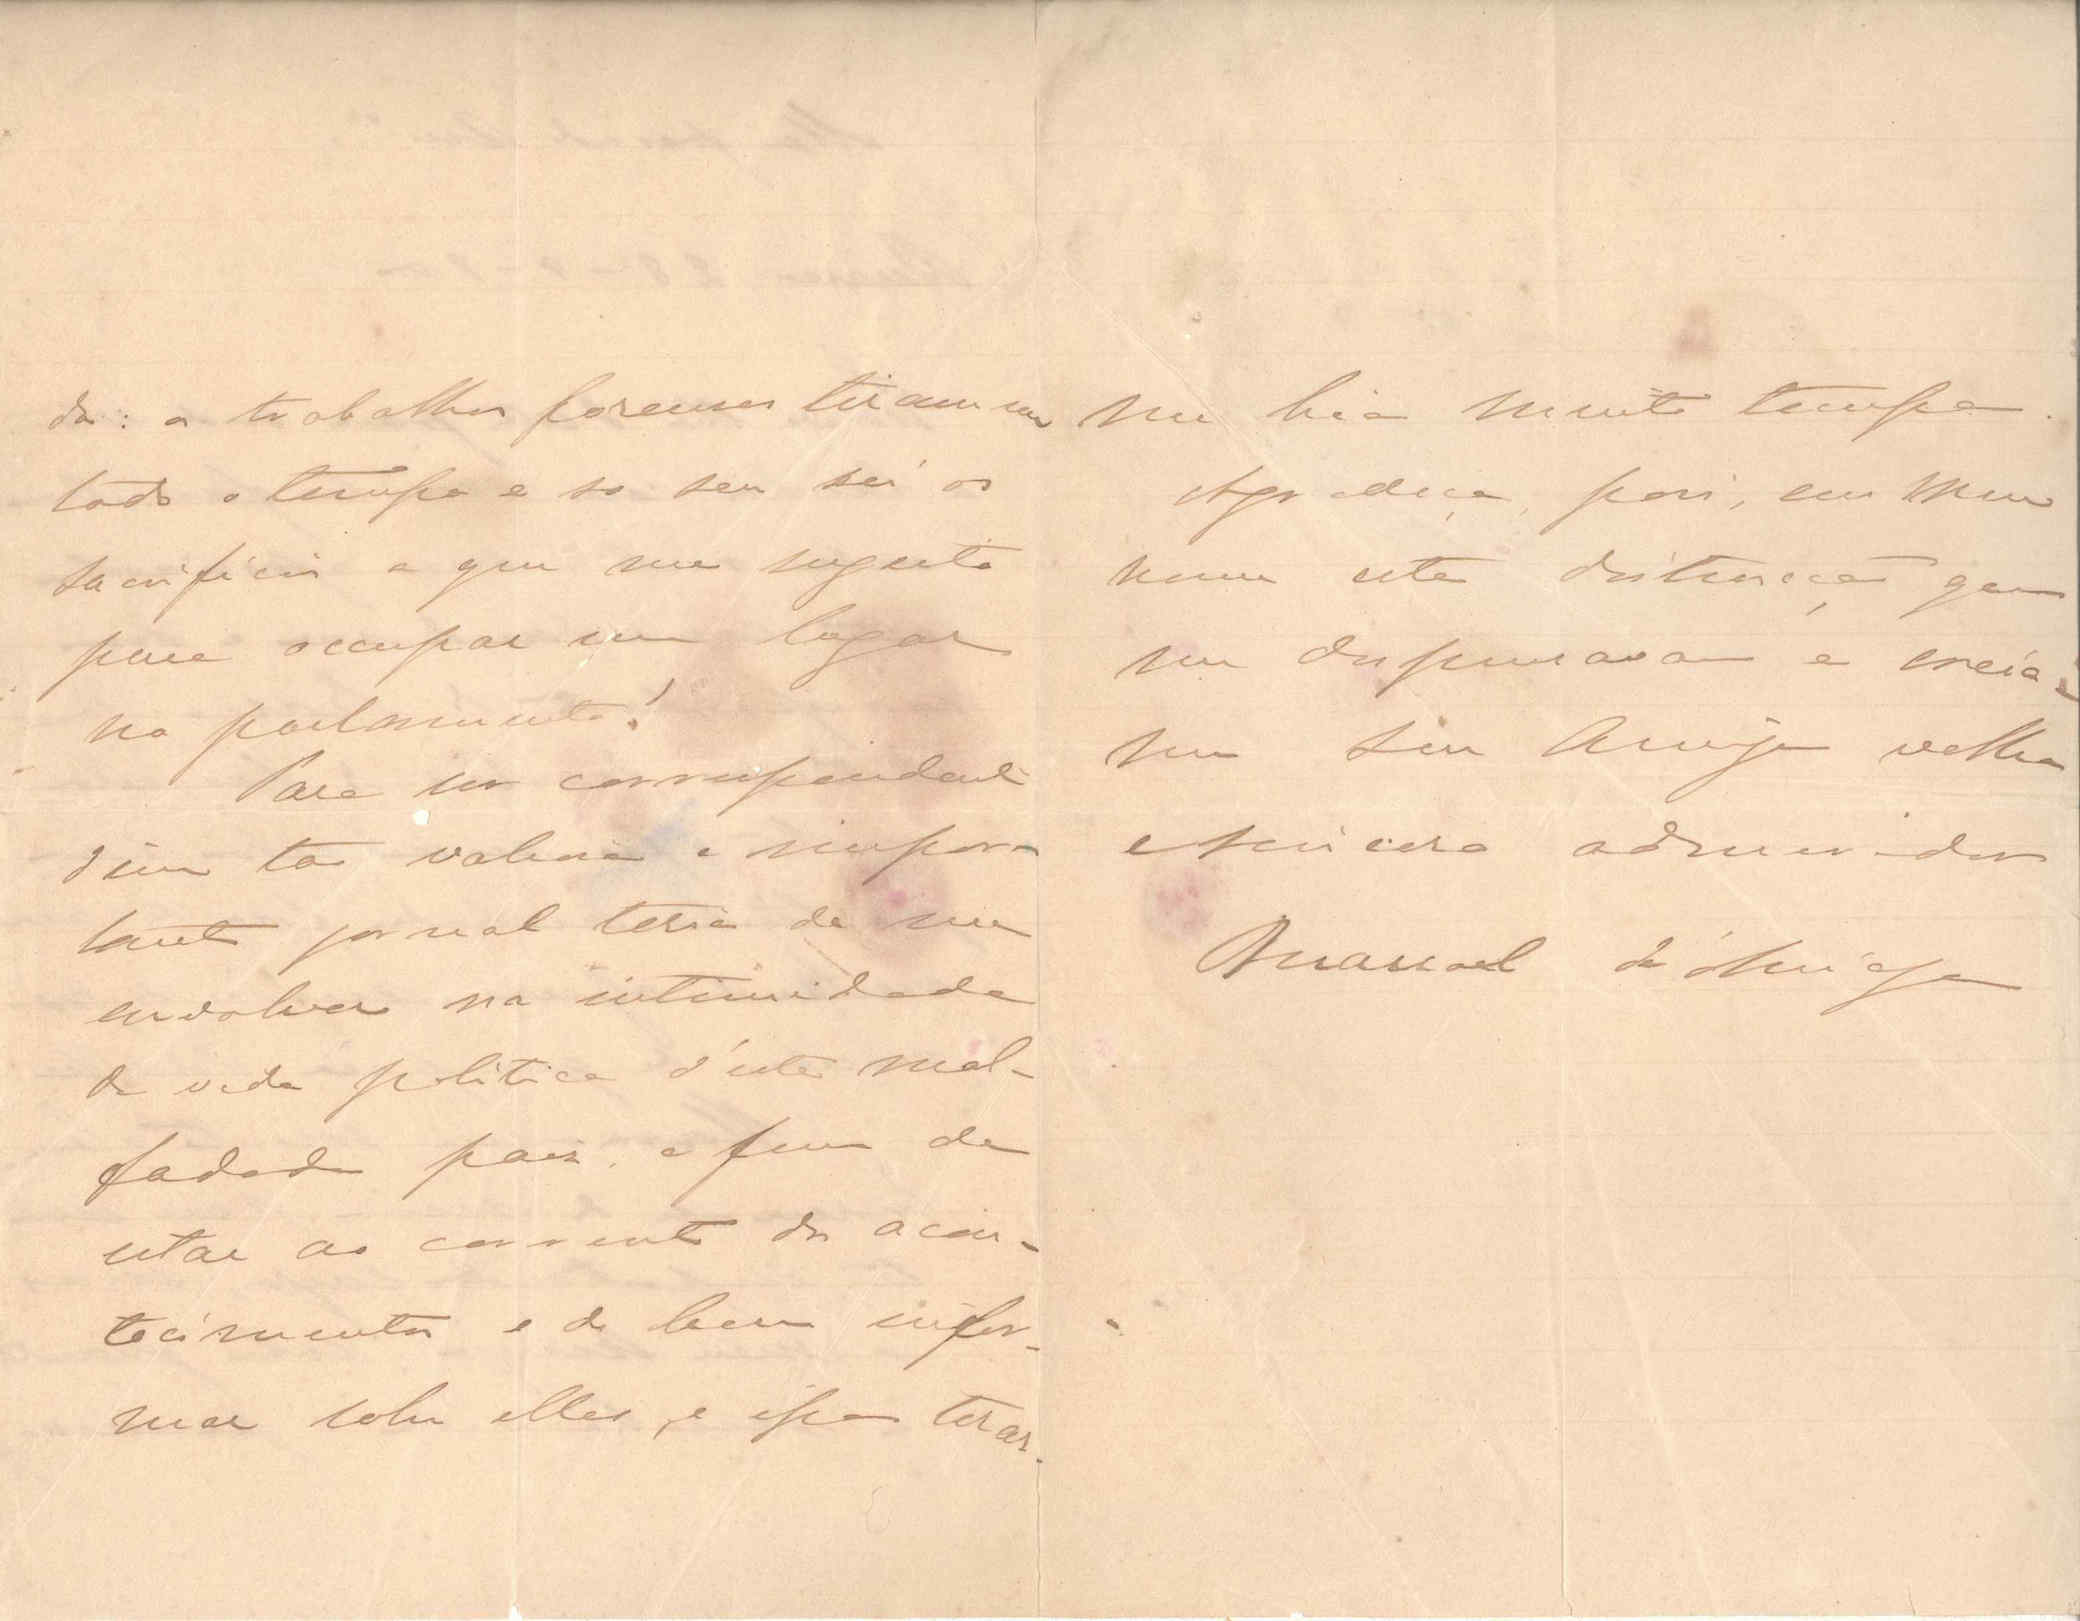 do: o trabalhos forenses tiram me
todo o tempo e so seu sei os
sacrificios a que me sugeito
para occupar um logar
no parlamento!
Para ser correspondente
d'um tão valioso e impor-
tante jornal teria de me
envolver na intimidade
da vida politica d'este mal-
fadado paiz, a fim de
estar ao corrente dos acon-
tecimentos e de bem infor-
mar sobre elles, e isso tirar-
me hia muito tempo.
Agradeça, pois, em meu
nome esta distincção que
me dispensavam e creia-
me seu amigo velho
e sincero admirador
Manoel d'